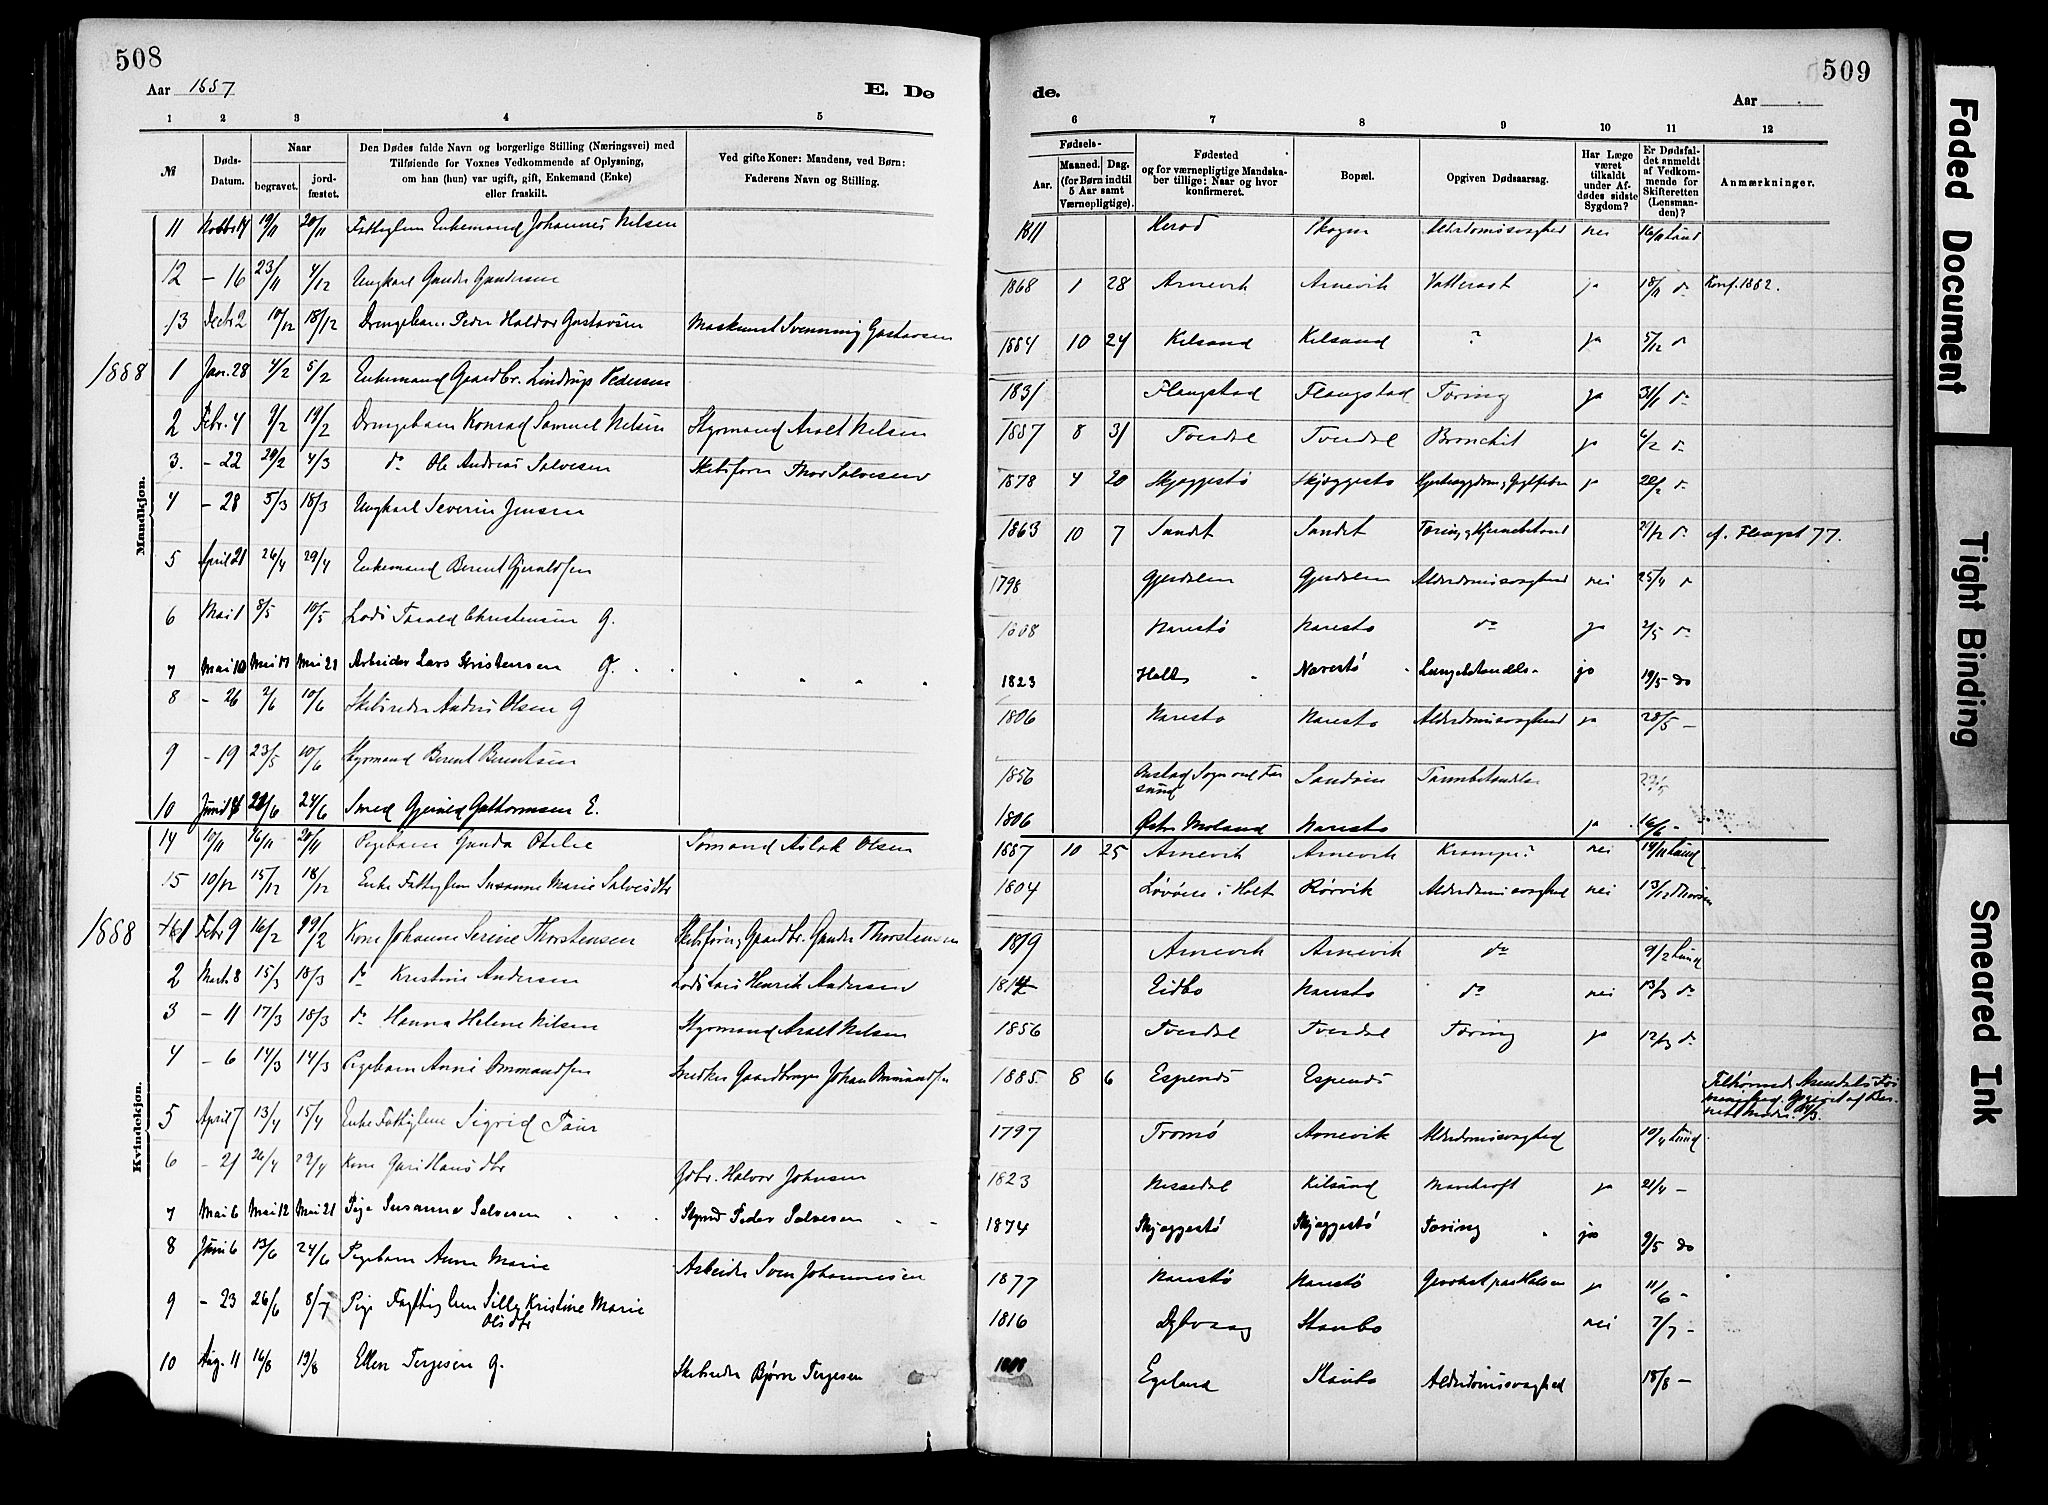 508
Aar 1887
E. Dø
de.
509
Aar
1 2 3 4 5 6 7 8 9 10 11 12
№
Døds-
Datum.
Naar
begravet.
jord-
fæstet.
Den Dødes fulde Navn og borgerlige Stilling (Næringsvei) med
Tilføiende for Voxnes Vedkommende af Oplysning,
om han (hun) var ugift, gift, Enkemand (Enke)
eller fraskilt.
Ved gifte Koner: Mandens, ved Børn:
Faderens Navn og Stilling.
Fødsels-
Aar.
Maaned. Dag.
(for Børn indtil
5 Aar samt
Værnepligtige).
Fødested
og for værnepligtige Mandska-
ber tillige: Naar og hvor
konfirmeret.
Bopæl.
Opgiven Dødsaarsag.
Har Læge
været
tilkaldt
under Af-
dødes sidste
Sygdom?
Er Dødsfal-
det anmeldt
af Vedkom-
mende for
Skifteretten
(Lensman-
den)?
Anmærkninger.
Mandkjøn.
11 19/11 20/11 Enkemand Johannes Nilsen 1811 Herød Alderdomssvaghed nei 16/11 Lund
12 - 16 23/11 4/12 Ungkarl Gunder Gundersen 1868 1 28 Arnevik Arnevik Vattersot ja 18/11 do Konf. 1882.
13 Decbr 2 10/12 18/12 Drengebarn Peder Haldor Gustavsen Maskinist Svenning Gustavsen 1884 10 24 Kilsund Kilsund ? ja 5/12 do
1888 1 Jan. 28 4/2 5/2 Enkemand Gaardbr. Lindrup Pedersen 1831 Flangstad Flangstad Tæring ja 31/1 do
2 Febr. 4 9/2 19/2 Drengebarn Konrad Samuel Nilsen Styrmand Aralt Nilsen 1887 8 31 Tverdal Tverdal Bronchit ja 6/2 do
3. - 22 29/2 4/3 do Ole Andreas Salvesen Skibsfører Thor Salvesen 1878 4 20 Skjeggestø Skjeggestø ja 22/2 do
4 - 28 5/3 18/3 Ungkarl Severin Jensen 1863 10 7 Sandet Sandet do cf. Flangst 77.
5 April 21 26/4 29/4 Enkemand Berent Gjeruldsen 1798 Gjerdalen Gjerdalen Alderdomssvaghed nei 25/4 do
6 Mai 1 8/5 10/5 Lods Tarald Christensen G. 1808 Narestø Narestø do ja 2/5 do
7 Mai 10 Mai 17 Mai 21 Arbeider Lars Kristensen G. 1823 Holt Narestø Lungebetændelse ja 19/5 do
8 - 26 2/6 10/6 Skibsreder Anders Olsen G 1806 Narestø Narestø Alderdomssvaghed ja 28/5 -
9 - 19 23/5 10/6 Styrmand Berent Berentsen 1856 Sogn ved Far
sund Sandøen Tarmbetændelse
10 Juni 24/6 Smed Gjeruld Guttormsen E. 1806 Østre Moland Narestø ja 16/6 -
Kvindekjøn.
14 10/11 16/11 20/11 Pigebarn Gunda Otelie Sømand Aslak Olsen 1887 10 25 Arnevik Arnevik Krampe? nei 14/11 Lund
15 10/12 15/12 18/12 Enke Fattiglem Susanne Marie Salvesdtr 1804 i Holt Rørvik Alderdomssvaghed nei 13/12
1888 1 Febr 9 16/2 19/2 Kone Johanne Serine Thorstensen Skibsfører, Gaardbr. Gunder Thorstensen 1819 Arnevik Arnevik do 9/2 Lund
2 Marts 8 15/3 18/3 do Kristine Andersen Lods Lars Henrik Andersen Eidbo Narestø do nei 13/3 do
3 - 11 17/3 18/3 do Hanna Helene Nilsen Styrmand Aralt Nilsen 1856 Tverdal Tverdal Tæring ja 12/3 do
4 - 6 14/3 14/3 Pigebarn Anni Ommundsen Snedker Gaardbruger Johan Ommundsen 1885. 8 6 Espenes Espenes Tilhørende Arendals
menighed. Opgivet af
5 April 7 13/4 15/4 Enke Fattiglem Sigrid 1797 Tromø Arnevik Alderdomssvaghed 10/4 Lund
6 - 21 26/4 29/4 Kone Guri Hansdtr Gdbr. Halvor Johnsen 1823 Nissedal Kilsund Mavekræft ja 21/4 -
7 Mai 6 Mai 12 Mai 21 Pige Susanne Salvesen Styrmd Peder Salvesen 1874 Skjeggestø Skjeggestø Tæring ja 9/5 do
8 Juni 6 13/6 24/6 Pigebarn Anne Marie Arbeider Sven Johannesen 1877 Narestø Narestø ja 11/6 -
9 - 23 26/6 8/7 Pige Fattiglem Silly Kristine Marie
Olsdtr 1816 Dybvaag Staubo nei 7/7 -
10 Aug. 11 16/8 19/8 Ellen Terjesen G. Skibsreder Bjørn Terjesen Egeland Staubo Alderdomssvaghed 18/8 -
Faded Document
Tight Binding
Smeared Ink